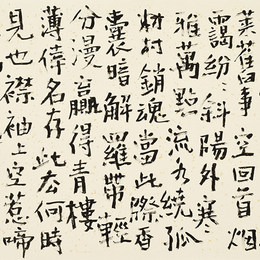 萊舊事空回首烟
靄紛〻斜陽外寒
雅萬點流水繞孤
村銷魂當此際香
囊暗解羅帶輕
分漫贏得青樓
薄倖名存此去何時
見也襟袖上空惹啼